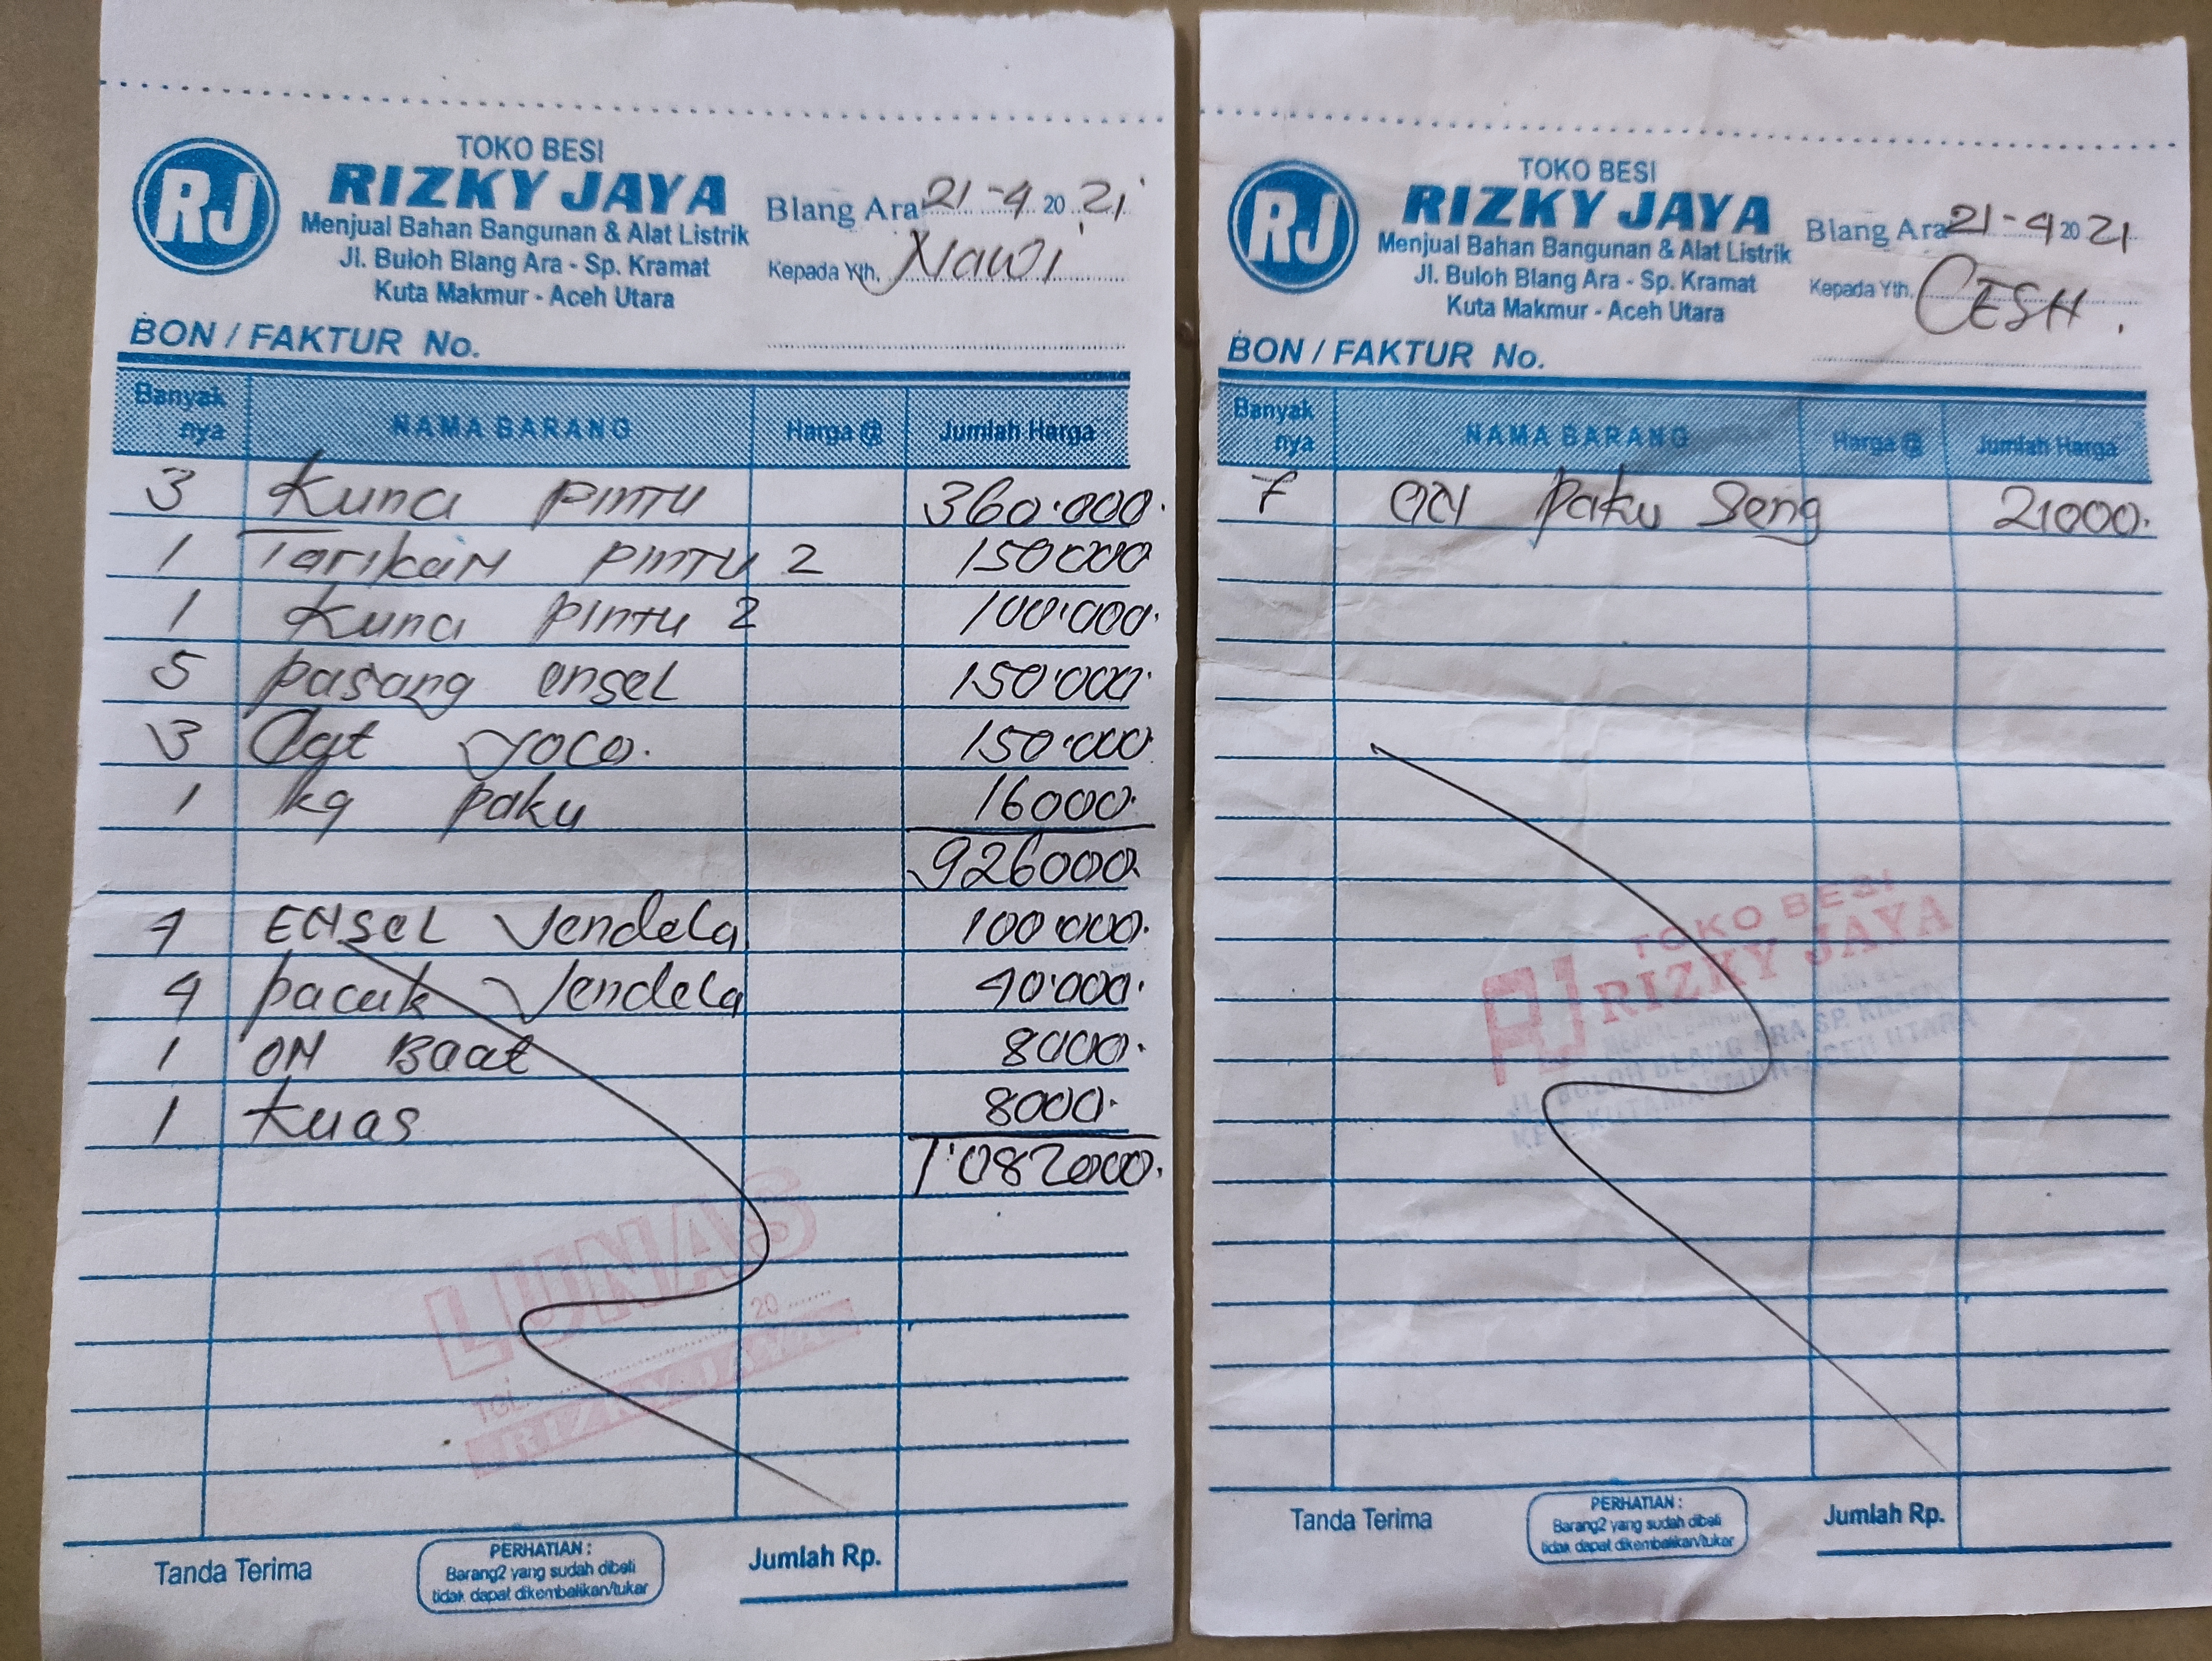 TOKO BESI
RJ RIZKY JAYA
Menjual Bahan Bangunan & Alat Listrik
Jl. Buloh Blang Ara - Sp. Kramat
Kuta Makmur - Aceh Utara
Blang Ara 21-4 2021
Kepada Yth. Nawi
BON / FAKTUR No.
Banyak nya NAMA BARANG Harga @ Jumlah Harga
3 Kunci pintu 360.000.
1 Tarikan pintu 2 150000
1 Kunci pintu 2 100.000.
5 pasang ensel 150.000.
3 Cat yoco. 150.000
1 kg paku 16000.
926000.
4 ENSEL Jendela 100000.
4 pacuk Jendela 40.000.
1 ON Baat 8000.
1 Kuas 8000.
1.082000.
LUNAS
TGL. 20
RIZKY JAYA
Tanda Terima
PERHATIAN :
Barang2 yang sudah dibeli
tidak dapat dikembalikan/tukar
Jumlah Rp.
TOKO BESI
RJ RIZKY JAYA
Menjual Bahan Bangunan & Alat Listrik
Jl. Buloh Blang Ara - Sp. Kramat
Kuta Makmur - Aceh Utara
Blang Ara 21-4 2021
Kepada Yth. CESH.
BON / FAKTUR No.
Banyak nya NAMA BARANG Harga @ Jumlah Harga
7 ON paku Seng 21000.
TOKO BESI
RJ RIZKY JAYA
JL. BULOH BLANG ARA SP. KRAMAT
KEC. KUTAMAKMUR-ACEH UTARA
Tanda Terima
PERHATIAN :
Barang2 yang sudah dibeli
tidak dapat dikembalikan/tukar
Jumlah Rp.